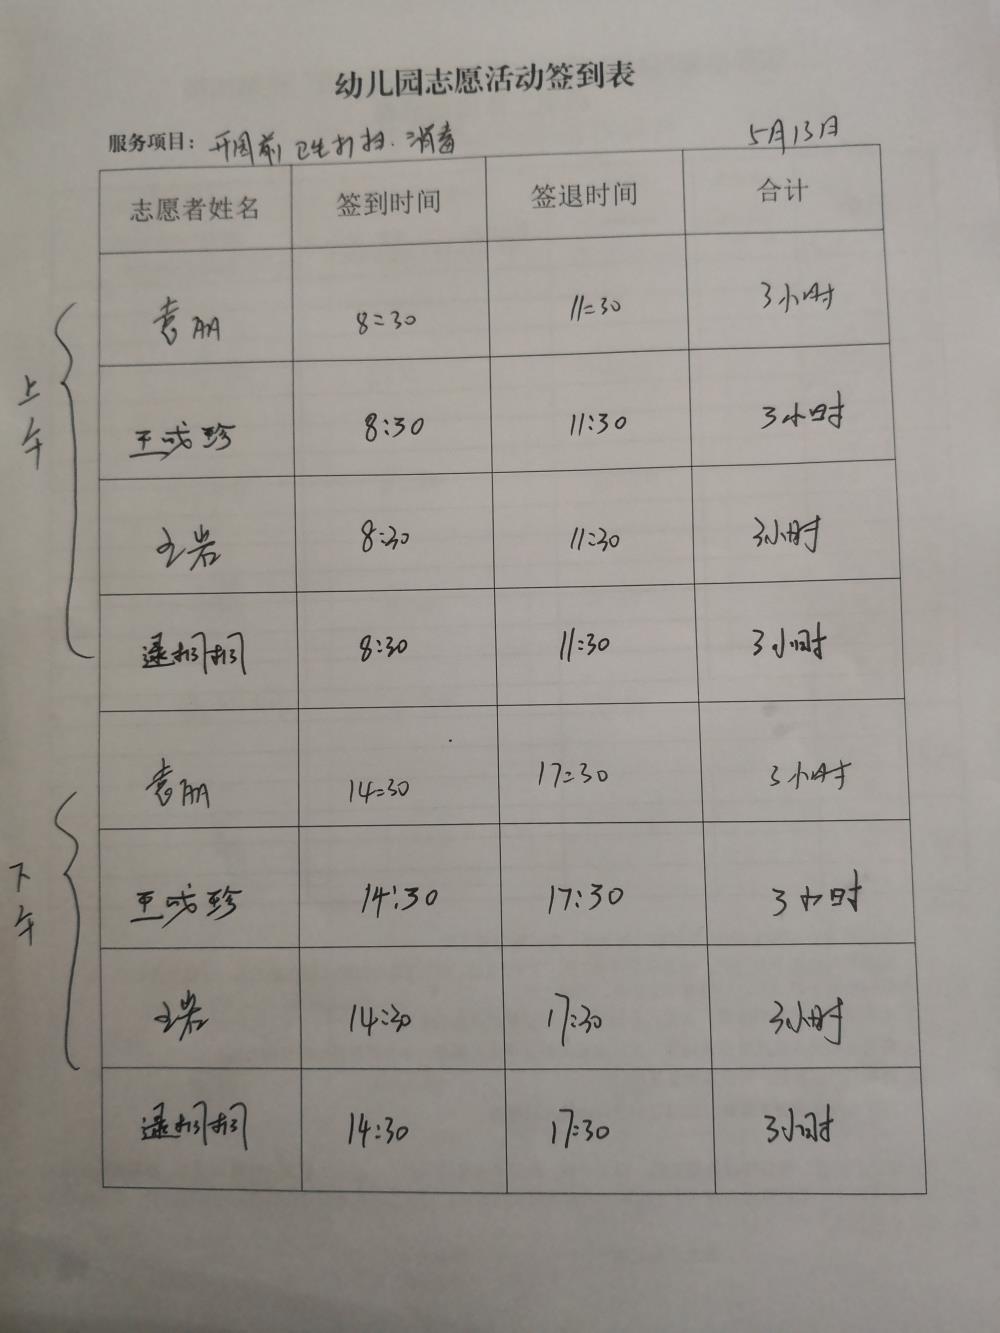 幼儿园志愿活动签到表
服务项目：开园前卫生打扫.消毒 5月13日
志愿者姓名 签到时间 签退时间 合计
上午
袁朋 8:30 11:30 3小时
王成珍 8:30 11:30 3小时
王岩 8:30 11:30 3小时
逯栩栩 8:30 11:30 3小时
下午
袁朋 14:30 17:30 3小时
王成珍 14:30 17:30 3小时
王岩 14:30 17:30 3小时
14:30 17:30 3小时